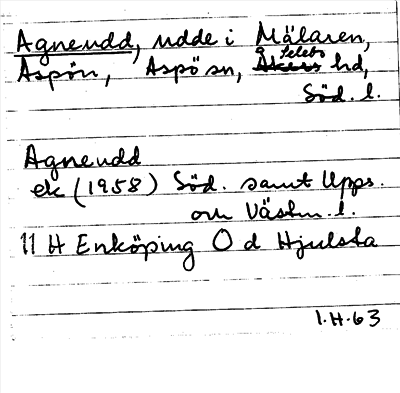 Agneudd, udde i Mälaren,
Aspön, Aspö sn, Åkers Selebo hd,
Söd. l.
Agneudd
ek (1958) Söd. samt Upps.
och Västm. l.
11 H Enköping O d Hjulsta
1.H.63